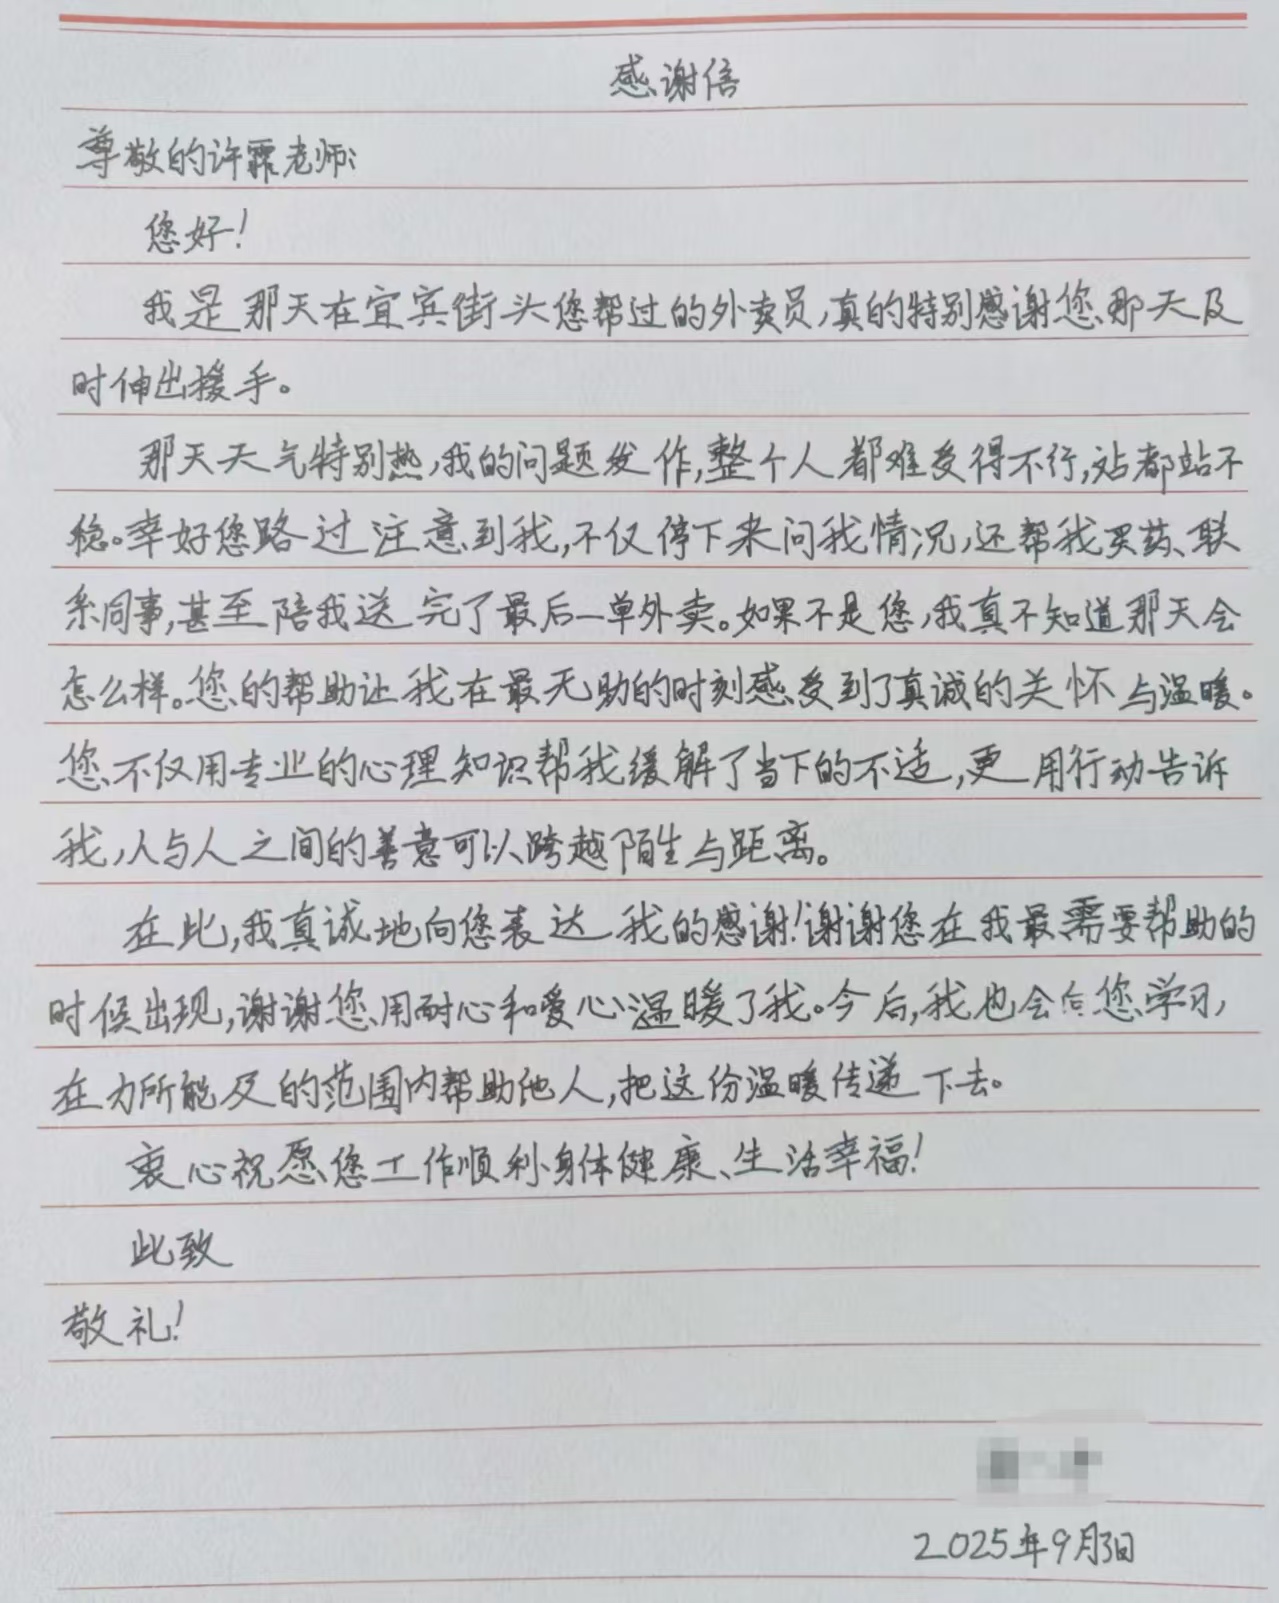 感谢信
尊敬的许霏老师:
您好!
我是那天在宜宾街头您帮过的外卖员,真的特别感谢您那天及
时伸出援手。
那天天气特别热,我的问题发作,整个人都难受得不行,站都站不
稳。幸好您路过注意到我,不仅停下来问我情况,还帮我买药、联
系同事,甚至陪我送完了最后一单外卖。如果不是您,我真不知道那天会
怎么样。您的帮助让我在最无助的时刻感受到了真诚的关怀与温暖。
您不仅用专业的心理知识帮我缓解了当下的不适,更用行动告诉
我,人与人之间的善意可以跨越陌生与距离。
在此,我真诚地向您表达我的感谢!谢谢您在我最需要帮助的
时候出现,谢谢您用耐心和爱心温暖了我。今后,我也会向您学习,
在力所能及的范围内帮助他人,把这份温暖传递下去。
衷心祝愿您工作顺利、身体健康、生活幸福!
此致
敬礼!
2025年9月3日